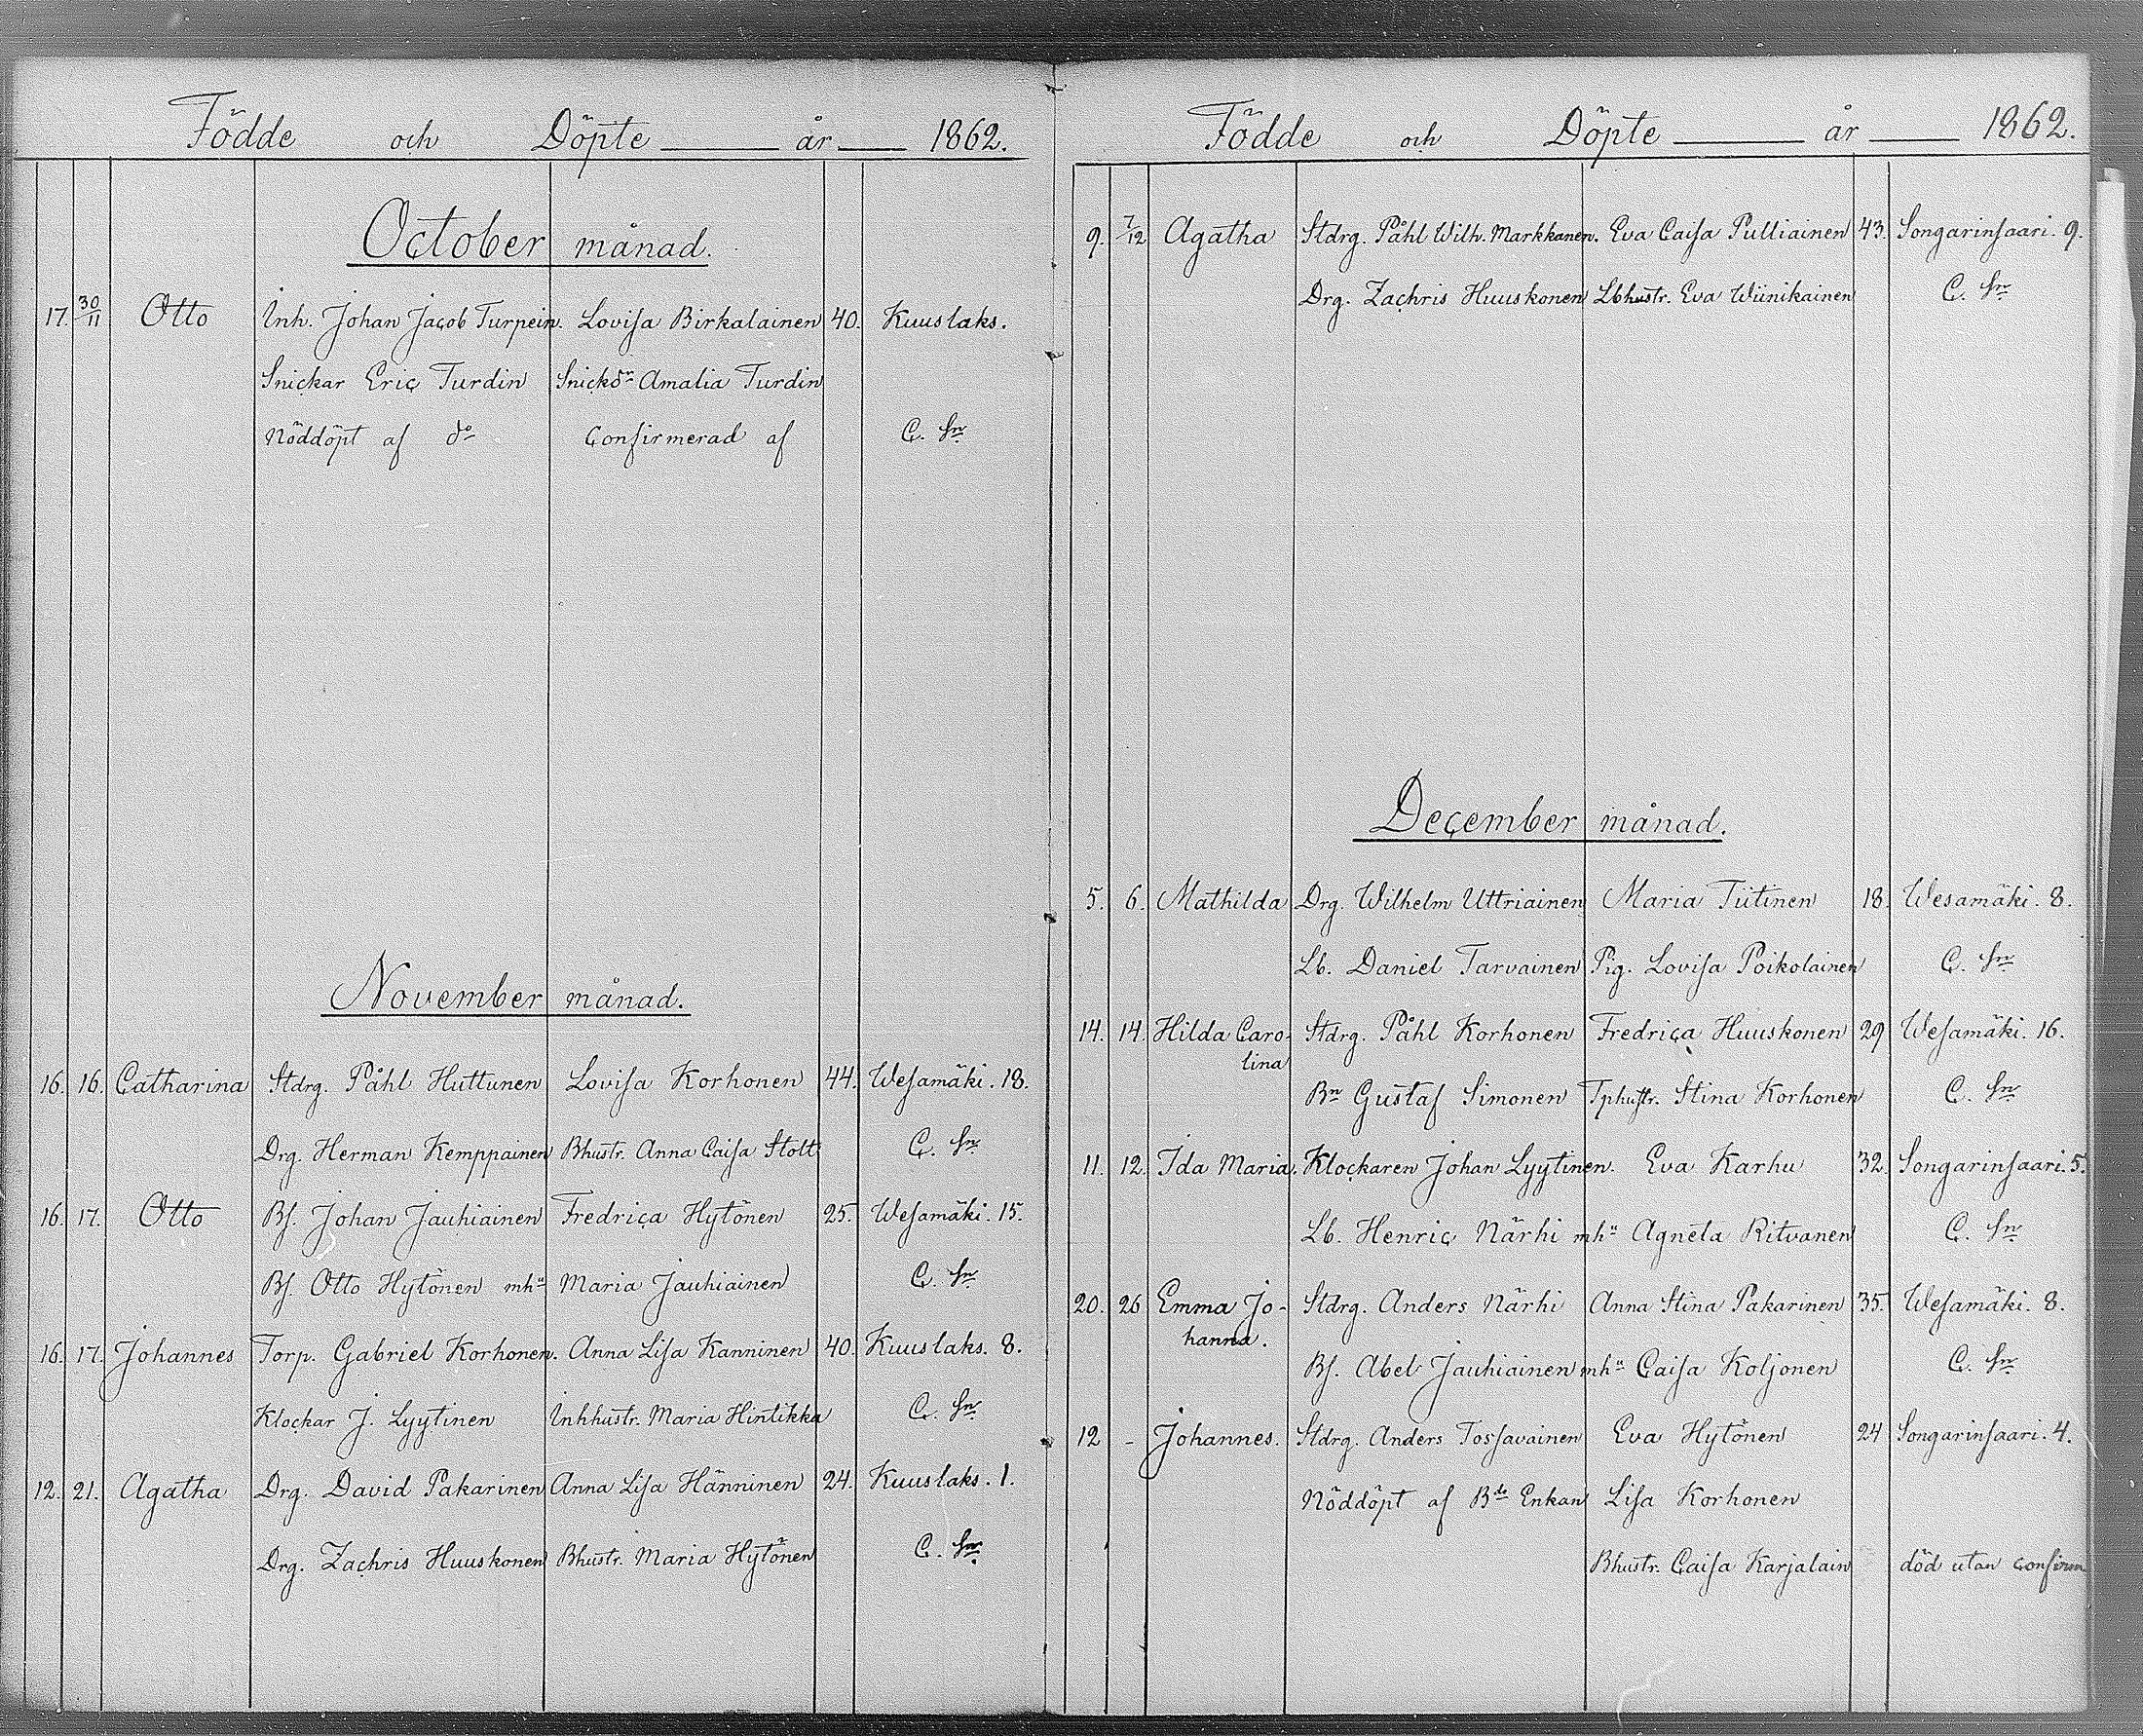 Födde och Döpte år 1862.
October månad.
17. 30/11 Otto Inh. Johan Jacob Turpein. Lovisa Birkalainen 40. Kuuslaks.
Snickar Eric Turdin Snickdr Amalia Turdin
Nöddöpt af do Confirmerad af C. Sn
November månad.
16. 16. Catharina Stdrg. Påhl Huttunen Lovisa Korhonen 44. Wesamäki. 18.
Drg. Herman Kemppainen Bhustr. Anna Caisa Stolt C. Sn
16. 17. Otto Bs. Johan Jauhiainen Fredrica Hytönen 25. Wesamäki. 15.
Bs. Otto Hytönen mhu Maria Jauhiainen C. Sn
16. 17. Johannes Torp. Gabriel Korhonen. Anna Lisa Kanninen 40. Kuuslaks. 8.
Klockar J. Lyytinen Inhhustr. Maria Hintikka C. Sn
12. 21. Agatha Drg. David Pakarinen Anna Lisa Hänninen 24. Kuuslaks. 1.
Drg. Zachris Huuskonen Bhustr. Maria Hytönen C. Sn
Födde och Döpte år 1862.
9. 7/12 Agatha Stdrg. Påhl Wilh. Markkanen. Eva Caisa Pulliainen 43. Songarinsaari. 9.
Drg. Zachris Huuskonen Lbhustr. Eva Wiinikainen C. Sn
December månad.
5. 6. Mathilda Drg. Wilhelm Uttriainen Maria Tiitinen 18. Wesamäki. 8.
Lb. Daniel Tarvainen Pig. Lovisa Poikolainen C. Sn
14. 14. Hilda Caro- Stdrg. Påhl Korhonen Fredrica Huuskonen 29 Wesamäki. 16.
lina
Bn Gustaf Simonen Tphustr. Stina Korhonen C. Sn
11. 12. Ida Maria. Klockaren Johan Lyytinen. Eva Karhu 32. Songarinsaari. 5.
Lb. Henric Närhi mhu Agneta Ritvanen C. Sn
20. 26 Emma Jo- Stdrg. Anders Närhi Anna Stina Pakarinen 35. Wesamäki. 8.
hanna.
Bs. Abel Jauhiainen mhu Caisa Koljonen C. Sn
12 - Johannes. Stdrg. Anders Tossavainen Eva Hytönen 24 Songarinsaari. 4.
Nöddöpt af Bde Enkan Lisa Korhonen
Bhustr. Caisa Karjalain död utan confirm